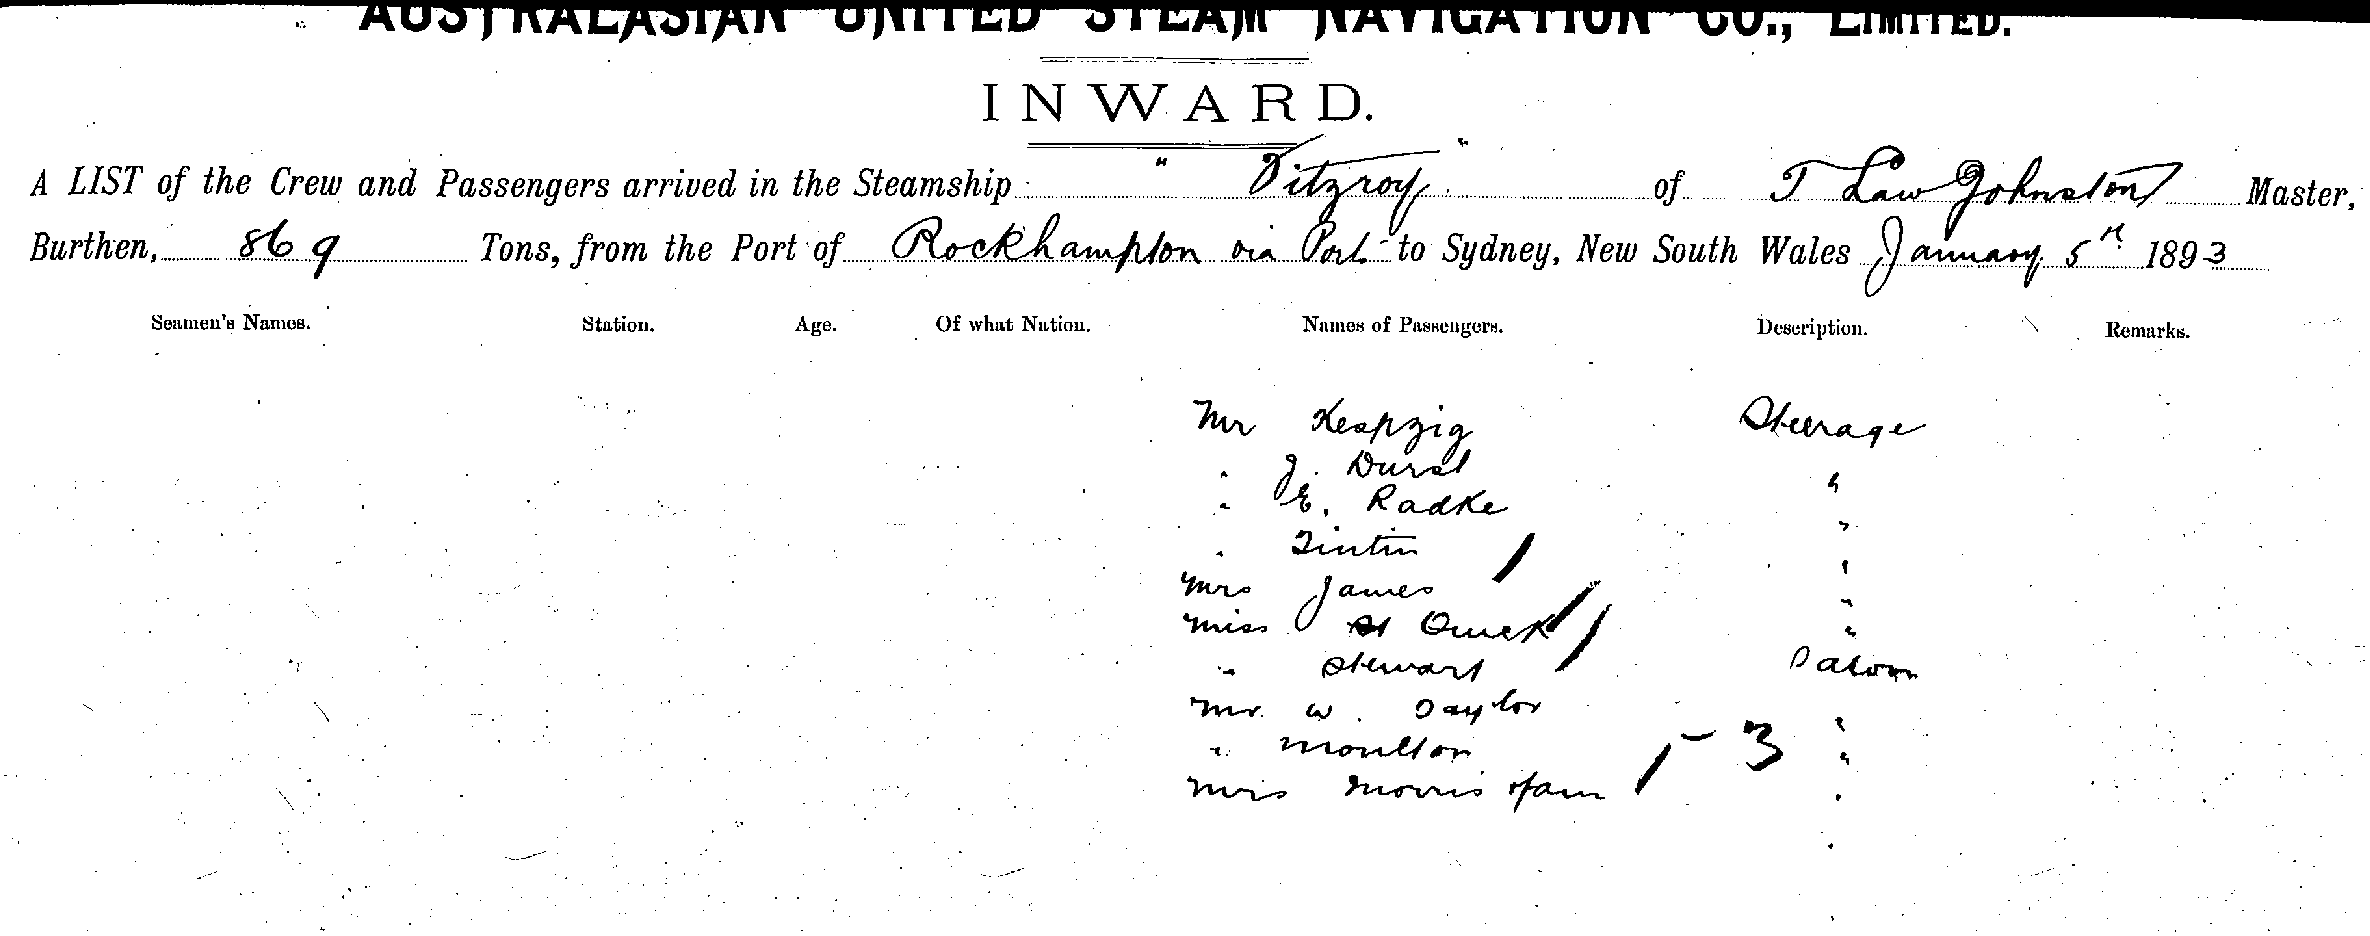 AUSTRALASIAN UNITED STEAM NAVIGATION CO., LIMITED.
INWARD.
A LIST of the Crew and Passengers arrived in the Steamship "Fitzroy" of T Law Johnston Master,
Burthen, 869 Tons, from the Port of Rockhampton via Port to Sydney, New South Wales January 5th 1893
Seamen's Names. Station. Age. Of what Nation. Names of Passengers. Description. Remarks.
Mr Steerage
" J. Durst "
" E. Radke "
" Tintin "
Mrs James "
Miss Quick "
" Stewart Saloon
Mr. W. Taylor "
" Moulton 3 "
Mrs Morris "